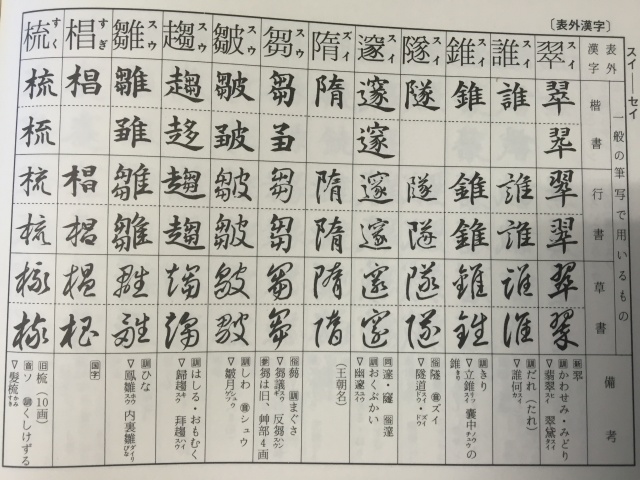 〔表外漢字〕
スイ ー セイ
表外漢字
一般の筆写で用いるもの
楷書
行書
草書
備考
翠 スイ
翠 翠 翠 翠 翠
訓 かわせみ・みどり
▽翡翠スイ 翠黛タイ
誰 スイ
誰 誰 誰 誰 誰
訓 だれ(たれ)
▽誰何スイカ
錐 スイ
錐 錐 錐 錐 錐
訓 きり
▽立錐スイ 嚢中ノウチュウの
錐きり
隧 スイ
隧 隧 隧 隧 隧
音 ズイ
▽隧道スイドウ・ズイドウ
邃 スイ
邃 邃 邃 邃 邃 邃
訓 おくぶかい
▽幽邃スイ
隋 ズイ
隋 隋 隋 隋 隋
(王朝名)
芻 スウ
芻 芻 芻 芻 芻
俗 蒭 訓 まぐさ
▽芻議スウ 反芻スウ
芻は旧、艸部4画
皺 スウ
皺 皺 皺 皺 皺
訓 しわ 音 シュウ
▽皺月シュウ
趨 スウ
趨 趨 趨 趨 趨
訓 はしる・おもむく
▽歸趨スウ 拜趨スウ
雛 スウ
雛 雛 雛 雛 雛
訓 ひな
▽鳳雛スウ 内裏雛ダイリびな
椙 すぎ
椙 椙 椙 椙 椙
国字
梳 すく
梳 梳 梳 梳 梳 梳
旧 梳(10画)
音 ソ 訓 くしけずる
▽髪梳かみすき